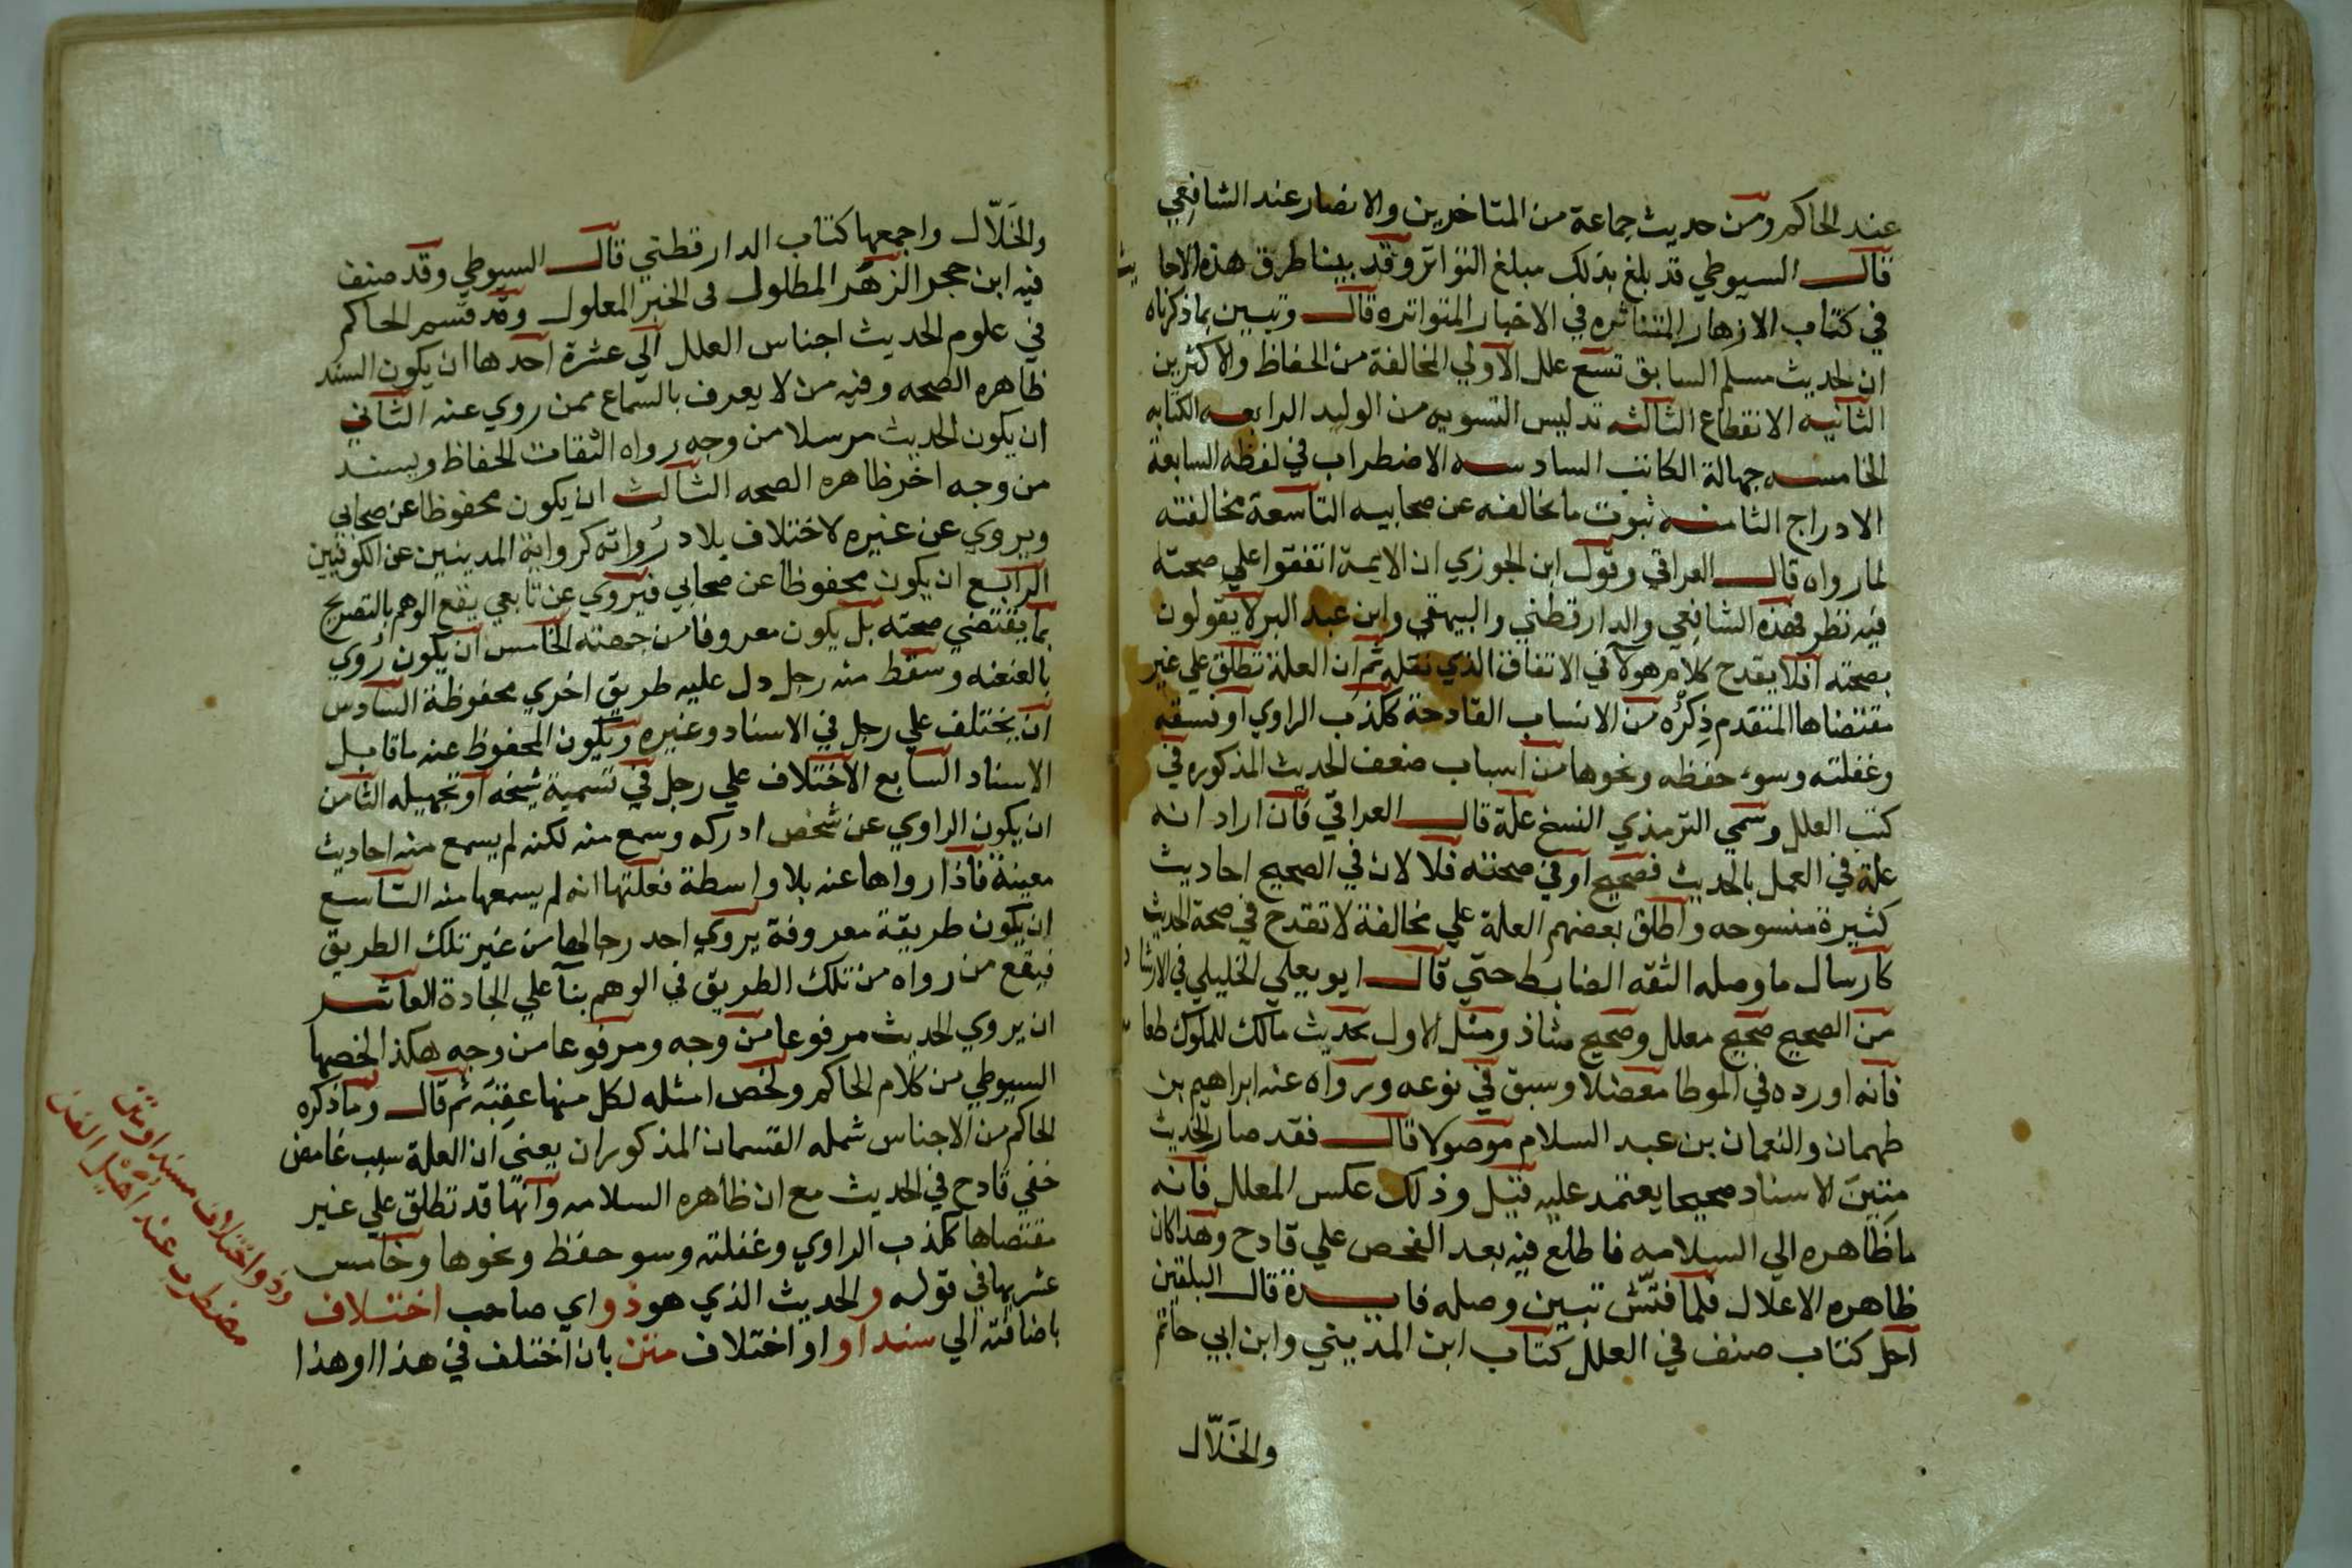 عند الحاكم ومن حديث جماعة من المتاخرين والانصار عند الشافعي
قال السيوطي قد بلغ بذلك مبلغ التواتر وقد بينا طرق هذه الاحاديث
في كتاب الازهار المتناثره في الاخبار المتواتره قال وتبين بما ذكرناه
ان لحديث مسلم السابق تسع علل الاولي المخالفة من الحفاظ والاكثرين
الثانيه الانقطاع الثالثه تدليس التسويه من الوليد الرابعه الكتابه
الخامسه جهالة الكاتب السادسه الاضطراب في لفظه السابعة
الادراج الثامنه ثبوت ما يخالفه عن صحابيه التاسعة مخالفته
لما رواه قال العراقي وقول ابن الجوزي ان الايمة اتفقوا علي صحته
فيه نظر فهذه الشافعي والدارقطني والبيهقي وابن عبد البر لا يقولون
بصحته افلا يقدح كلام هولآ في الاتفاق الذي نقله ثم ان العلة تطلق علي غير
مقتضاها المتقدم ذِكرُه من الاسباب القادحة ككذب الراوي او فسقه
وغفلته وسوء حفظه ونحوها من اسباب ضعف الحديث المذكوره في
كتب العلل وسمي الترمذي النسخ علة قال العراقي فان اراد انه
علة في العمل بالحديث فصحيح او في صحته فلا لان في الصحيح احاديث
كثيرة منسوخه واطلق بعضهم العلة علي مخالفة لا تقدح في صحة الحديث
كارسال ما وصله الثقه الضابط حتي قال ابو يعلي الخليلي في الارشاد
من الصحيح صحيح معلل وصحيح شاذ ومثل الاول بحديث مالك للملوك طعامه
فانه اورده في الموطا معضلا وسبق في نوعه ورواه عنه ابراهيم بن
طهمان والنعمان بن عبد السلام موصولا قال فقد صار الحديث
بتبين الاسناد صحيحا يعتمد عليه قيل وذلك عكس المعلل فانه
ما ظاهره الي السلامه فاطلع فيه بعد الفحص علي قادح وهذا كان
ظاهره الاعلال فلما فتّش تبين وصله فايدة قال البلقيني
اجل كتاب صنف في العلل كتاب ابن المديني وابن ابي حاتم
والخلّال
والخَلّال واجمعها كتاب الدارقطني قال السيوطي وقد صنف
فيه ابن حجر الزهر المطلول في الخبر المعلول وقد قسم الحاكم
في علوم الحديث اجناس العلل الي عشرة احدها ان يكون السند
ظاهره الصحه وفيه من لا يعرف بالسماع ممن روي عنه الثاني
ان يكون الحديث مرسلا من وجه رواه الثقات الحفاظ ويسند
من وجه اخر ظاهره الصحه الثالث ان يكون محفوظا عن صحابي
ويروي عن غيره لاختلاف بلاد رُواته كرواية المدنيين عن الكوفيين
الرابع ان يكون محفوظا عن صحابي فيروي عن تابعي يقع الوهم بالتصريح
بما يقتضي صحته بل يكون معروفا من جهته الخامس ان يكون رُوي
بالعنعنه وسقط منه رجل دل عليه طريق اخري محفوظة السادس
ان يختلف علي رجل في الاسناد وغيره ويكون المحفوظ عنه ما قابل
الاسناد السابع الاختلاف علي رجل في تسمية شيخه او تجهيله الثامن
ان يكون الراوي عن شخص ادركه وسمع منه لكنه لم يسمع منه احاديث
معينة فاذا رواها عنه بلا واسطة فعلتها انه لم يسمعها منه التاسع
ان يكون طريقة معروفة يروي احد رجالها من غير تلك الطريق
فيقع من رواه من تلك الطريق في الوهم بنآ علي الجادة العاشر
ان يروي الحديث مرفوعا من وجه ومرفوعا من وجه هكذا لخصها
السيوطي من كلام الحاكم ولخص امثله لكل منها عقبَه ثم قال وما ذكره
الحاكم من الاجناس شمله القسمان المذكوران يعني ان العلة سبب غامض
خفي قادح في الحديث مع ان ظاهره السلامه وانها قد تطلق علي غير
مقتضاها ككذب الراوي وغفلته وسو حفظ ونحوها وخامس
عشريها في قوله والحديث الذي هو ذو اي صاحب اختلاف
باضافته الي سند او او اختلاف متن بان اختلف في هذا او هذا
وذو اختلاف سند او متن
مضطرب عند اهيل الفن